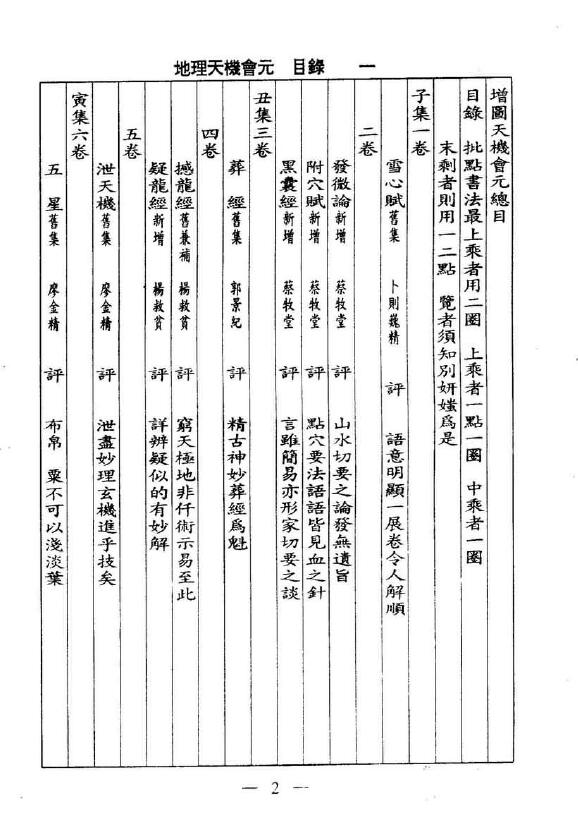 地理天機會元　目錄　一
增圖天機會元總目
目錄　批點書法最上乘者用二圈　上乘者一點一圈　中乘者一圈
末剩者則用一二點　覽者須知別妍媸爲是
子集一卷
雪心賦舊集　卜則巍精　評　語意明顯一展卷令人解順
二卷
發微論新增　蔡牧堂　評　山水切要之論發無遺旨
附穴賦新增　蔡牧堂　評　點穴要法語語皆見血之針
黑囊經新增　蔡牧堂　評　言雖簡易亦形家切要之談
丑集三卷
葬經舊集　郭景紀　評　精古神妙葬經爲魁
四卷
撼龍經舊兼補　楊救貧　評　窮天極地非仟術示易至此
疑龍經新增　楊救貧　評　詳辨疑似的有妙解
五卷
泄天機舊集　廖金精　評　泄盡妙理玄機進乎技矣
寅集六卷
五星舊集　廖金精　評　布帛　粟不可以淺淡葉
— 2 —